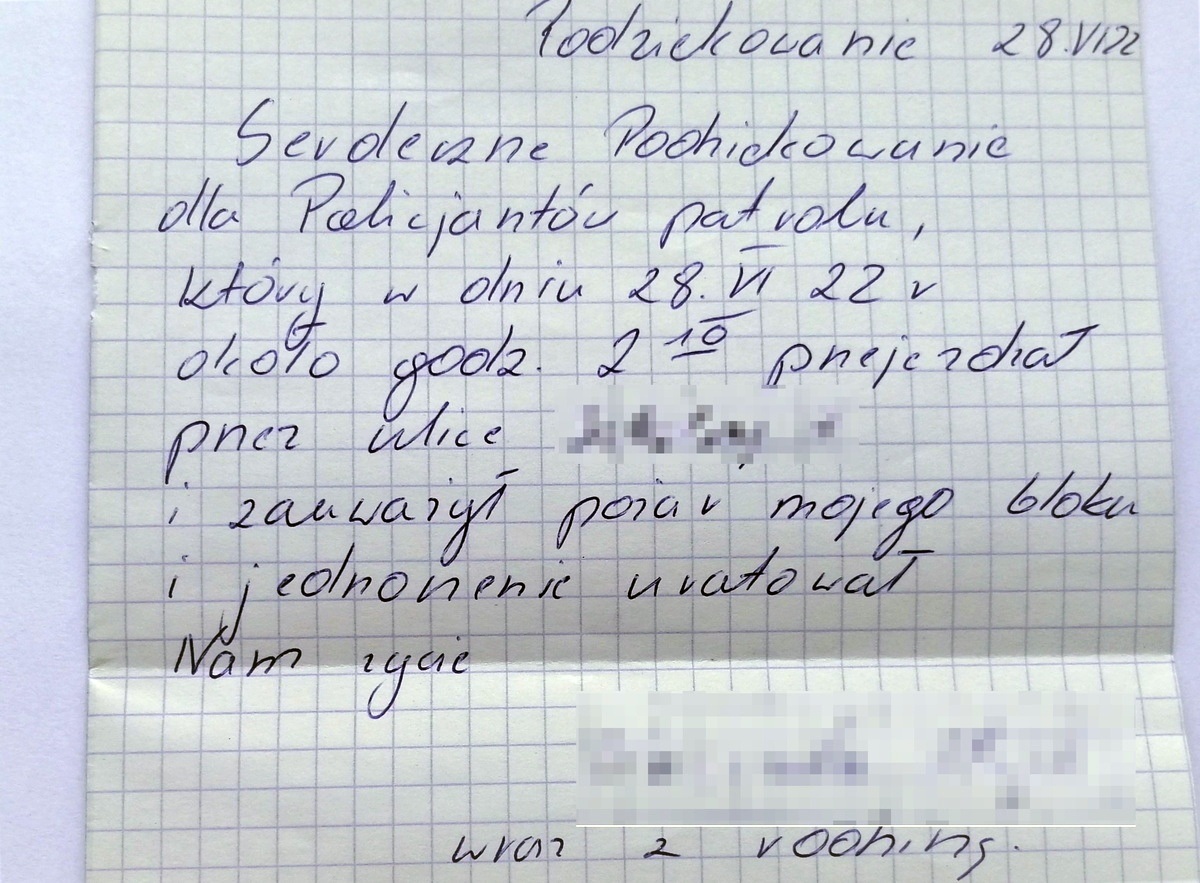 Podziękowanie 28.VI22
Serdeczne Podziękowanie
dla Policjantów patrolu,
który w dniu 28.VI 22 r
około godz. 2 10 przejeżdżał
przez ulice
i zauważył pożar mojego bloku
i jednoczenie uratował
Nam życie
wraz z rodziną.